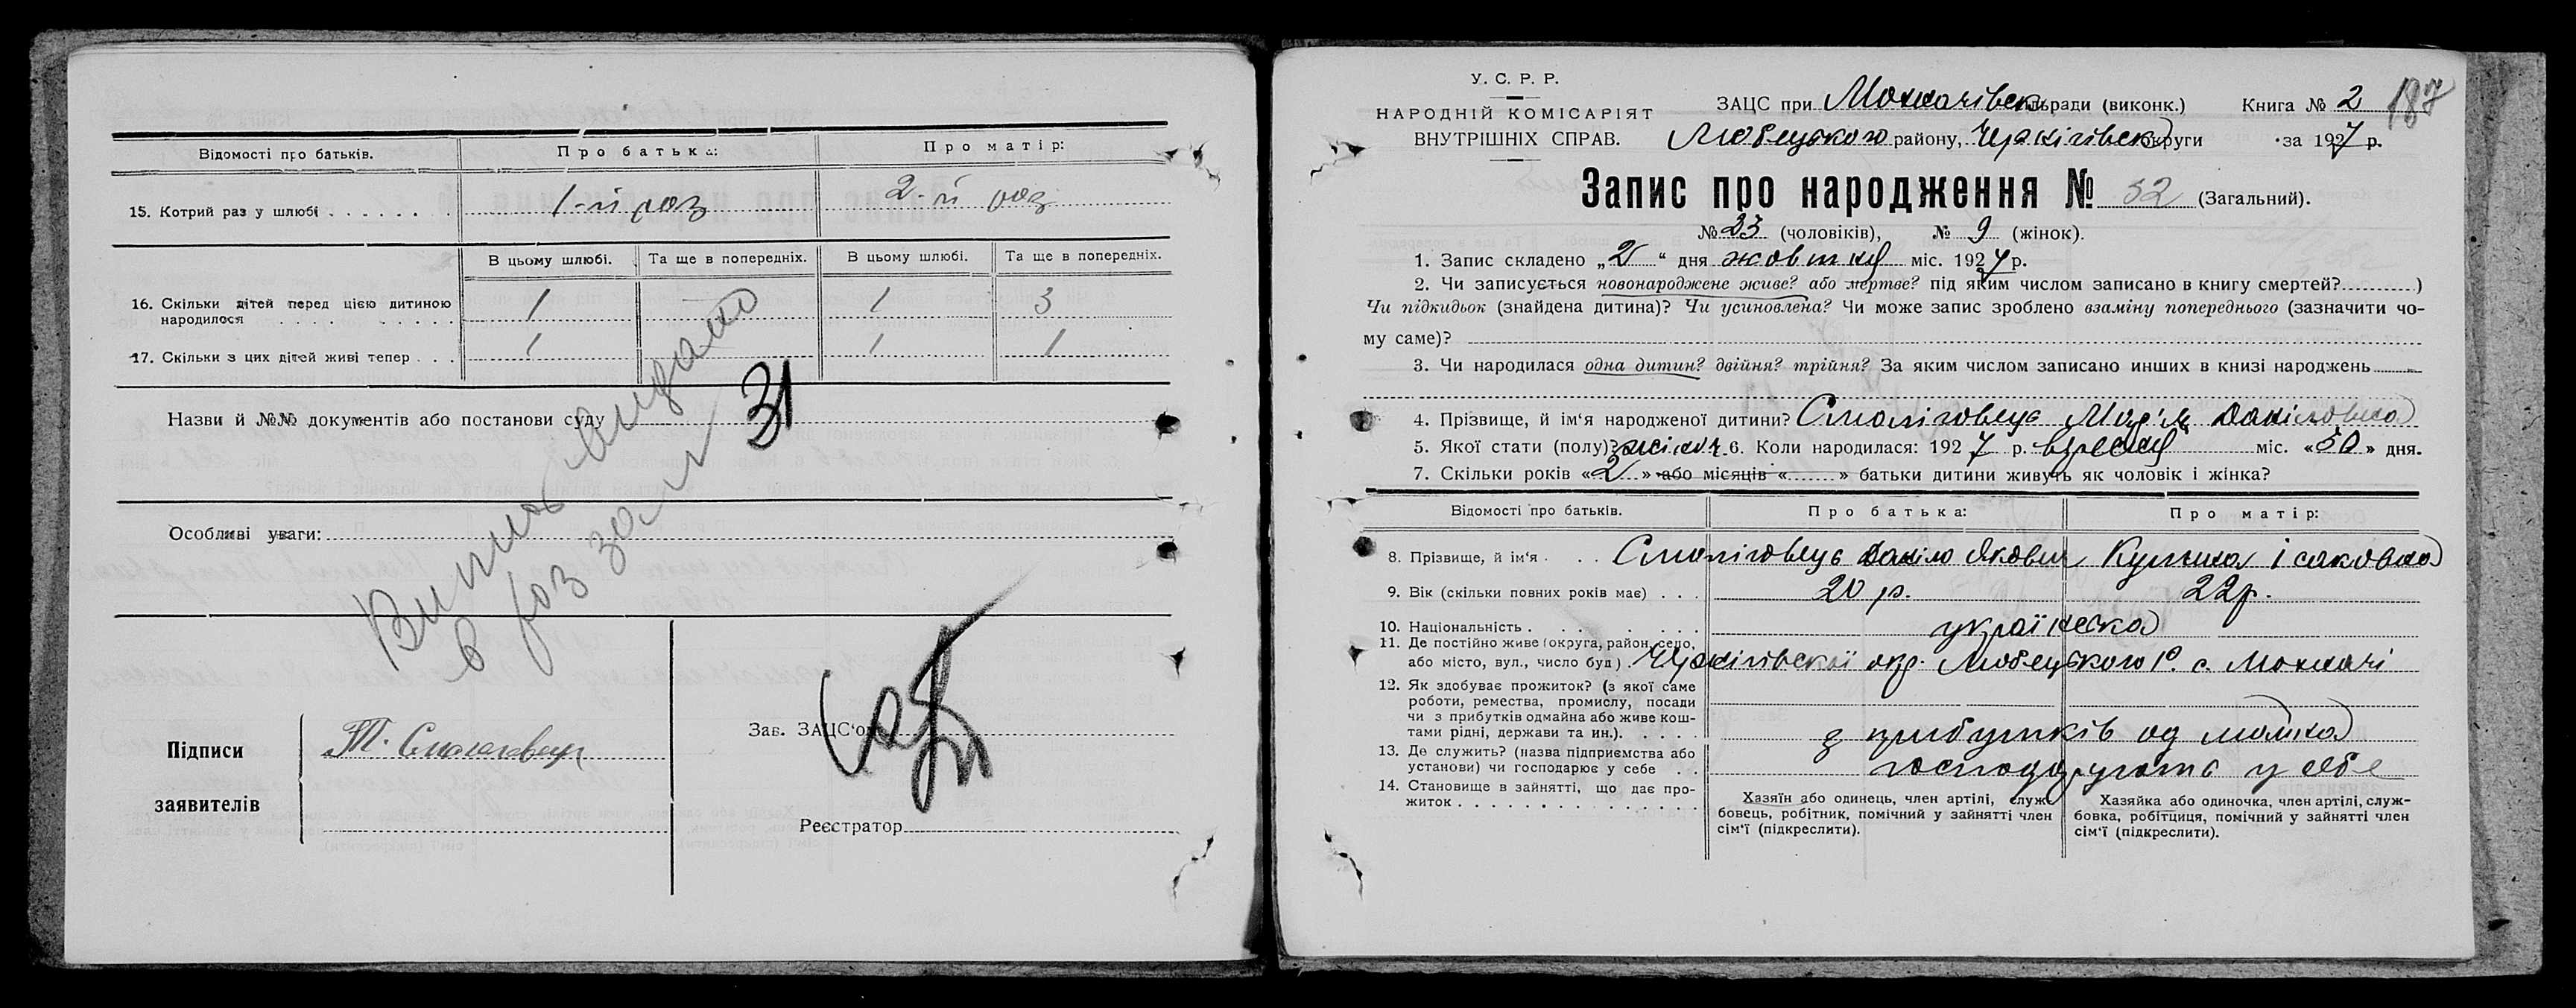 Відомості про батьків. Про батька: Про матір:
15. Котрий раз у шлюбі 1-й раз 2-й раз
В цьому шлюбі. Та ще в попередніх. В цьому шлюбі. Та ще в попередніх.
16. Скільки дітей перед цією дитиною
народилося 1 — 1 3
17. Скільки з цих дітей живі тепер 1 1 1
Назви й №№ документів або постанови суду
31
Особливі уваги:
Випис видано
в раз
Підписи
заявителів
Т. Смоляговець
Зав. ЗАЦС'ом
Реєстратор
У. С. Р. Р.
НАРОДНІЙ КОМІСАРІЯТ
ВНУТРІШНІХ СПРАВ.
ЗАЦС при Мохначівськ. сільради (виконк.) Книга № 2 187
Любецького району, Чернігівськ. округи за 1927 р.
Запис про народження № 32 (Загальний).
№ 23 (чоловіків), № 9 (жінок).
1. Запис складено „2“ дня жовтня міс. 1927 р.
2. Чи записується новонароджене живе? або мертве? під яким числом записано в книгу смертей? )
Чи підкидьок (знайдена дитина)? Чи усиновлена? Чи може запис зроблено взаміну попереднього (зазначити чо-
му саме)?
3. Чи народилася одна дитин? двійня? трійня? За яким числом записано инших в книзі народжень
4. Прізвище, й ім'я народженої дитини? Смоліговець Мар'я Даніловна
5. Якої стати (полу)? жіноч. 6. Коли народилася: 1927 р. вересня міс. «30» дня.
7. Скільки років «2» або місяців « » батьки дитини живуть як чоловік і жінка?
Відомості про батьків. Про батька: Про матір:
8. Прізвище, й ім'я Смоліговець Даніло Якович Ісаковна
9. Вік (скільки повних років має) 20 р. 22 р.
10. Національність українська
11. Де постійно живе (округа, район, село,
або місто, вул., число буд) Чернігівської окр. Любецького Р. с. Мохначі
12. Як здобуває прожиток? (з якої саме
роботи, ремества, промислу, посади
чи з прибутків одмайна або живе кош-
тами рідні, держави та ин.). з прибутків од майна
13. Де служить? (назва підприємства або
установи) чи господарює у себе господарують у себе
14. Становище в зайнятті, що дає про-
житок
Хазяїн або одинець, член артілі, служ-
бовець, робітник, помічний у зайнятті член
сім'ї (підкреслити).
Хазяйка або одиночка, член артілі, служ-
бовка, робітциця, помічний у зайнятті член
сім'ї (підкреслити).